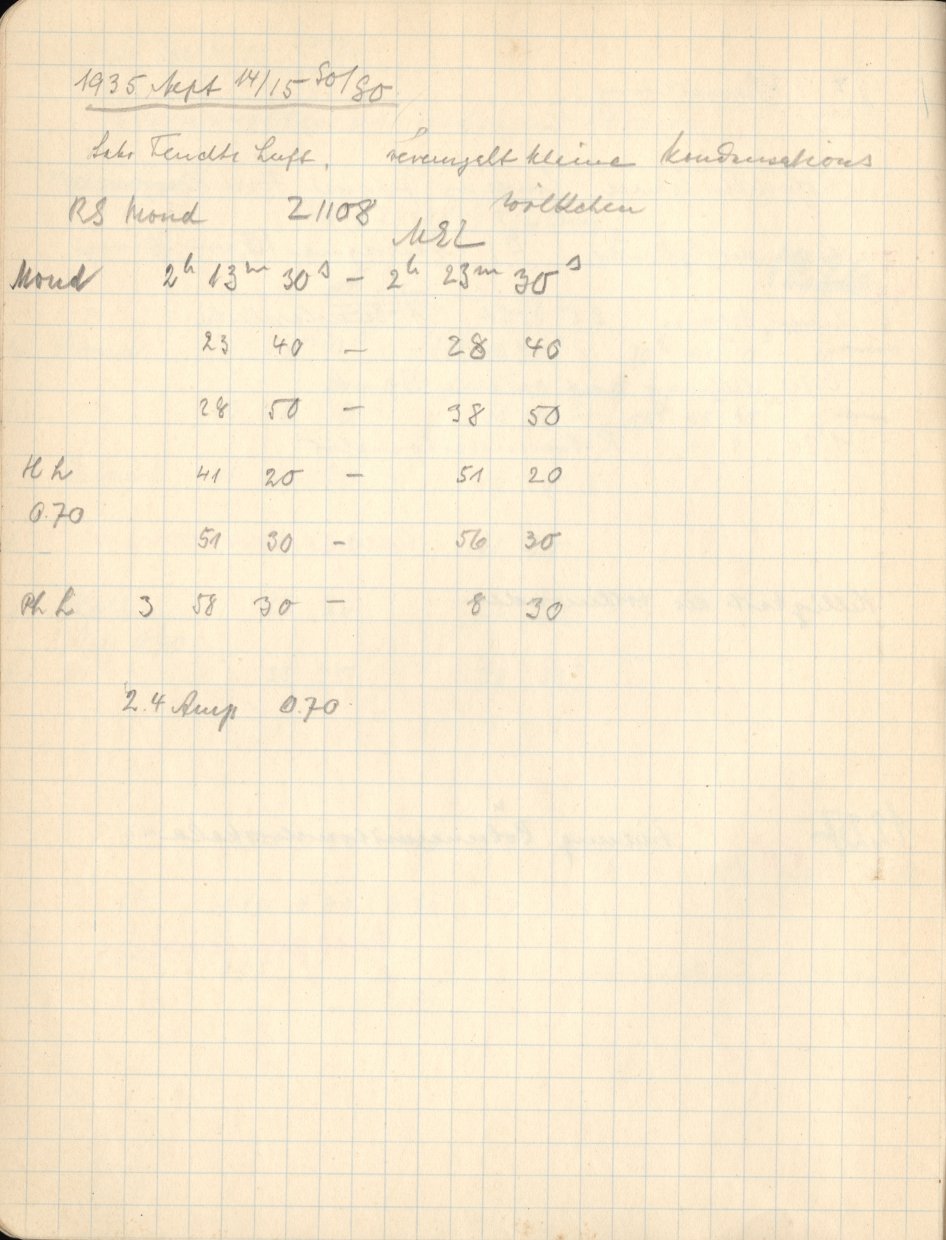 1935 Sept 14/15 So/So
Sehr feuchte Luft, vereinzelt kleine Kondensations
wölkchen
RS Mond Z 1108
MEZ
Mond 2h 13m 30s – 2h 23m 30s
23 40 – 28 40
28 50 – 38 50
H L 41 20 – 51 20
0.70
51 30 – 56 30
Ph L 3 58 30 – 8 30
2.4 Amp 0.70